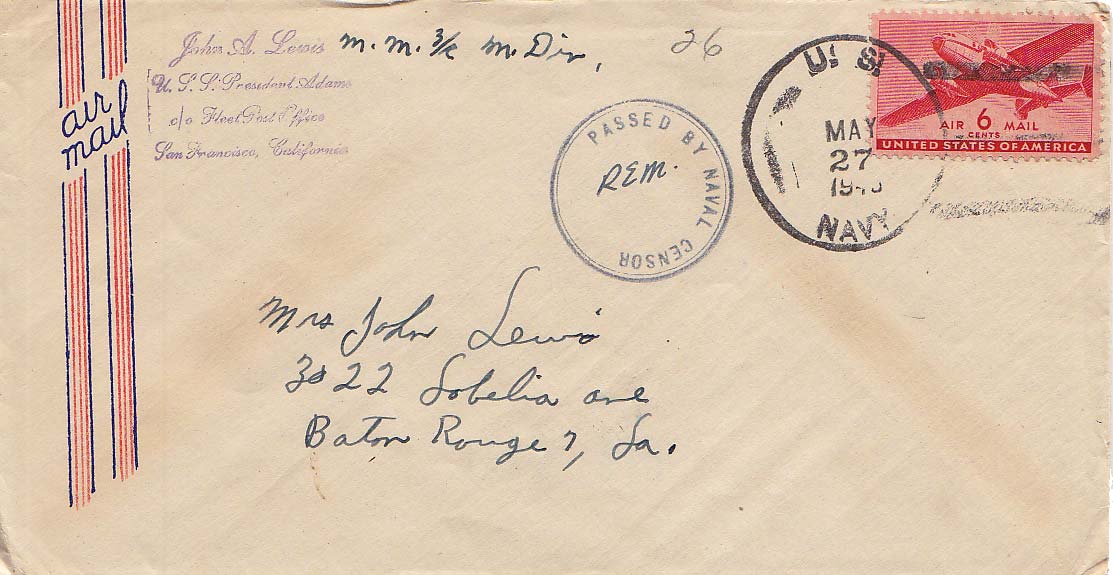 John A. Lewis M.M. 3/c M. Div,
U. S. S. President Adams
c/o Fleet Post Office
San Francisco, California
26
air
mail
PASSED BY NAVAL CENSOR
REM.
U. S.
MAY
27
NAVY
AIR 6 MAIL
CENTS
UNITED STATES OF AMERICA
Mrs John Lewis
3822 Lobelia ave
Baton Rouge 7, La.